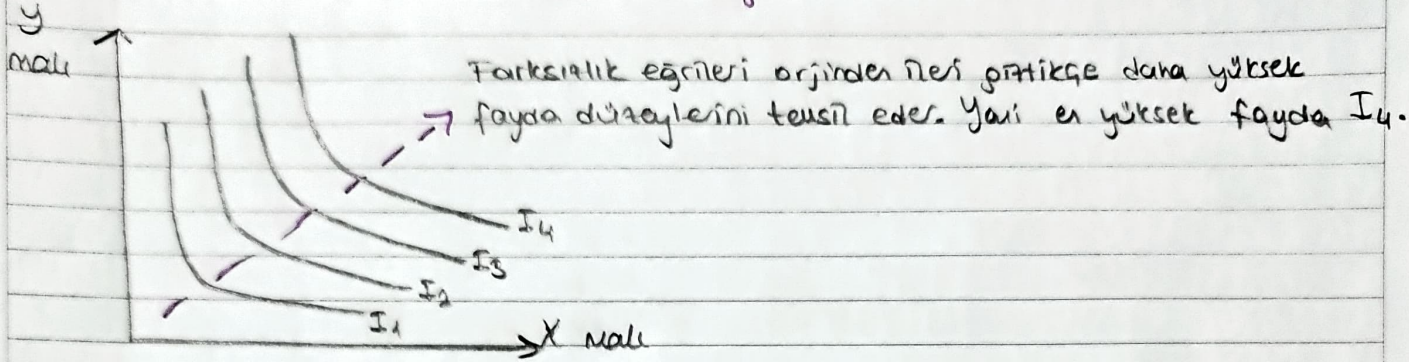 y
malı
Farksızlık eğrileri orjinden ileri gittikçe daha yüksek
fayda düzeylerini temsil eder. Yani en yüksek fayda I4.
I4
I3
I2
I1
X malı